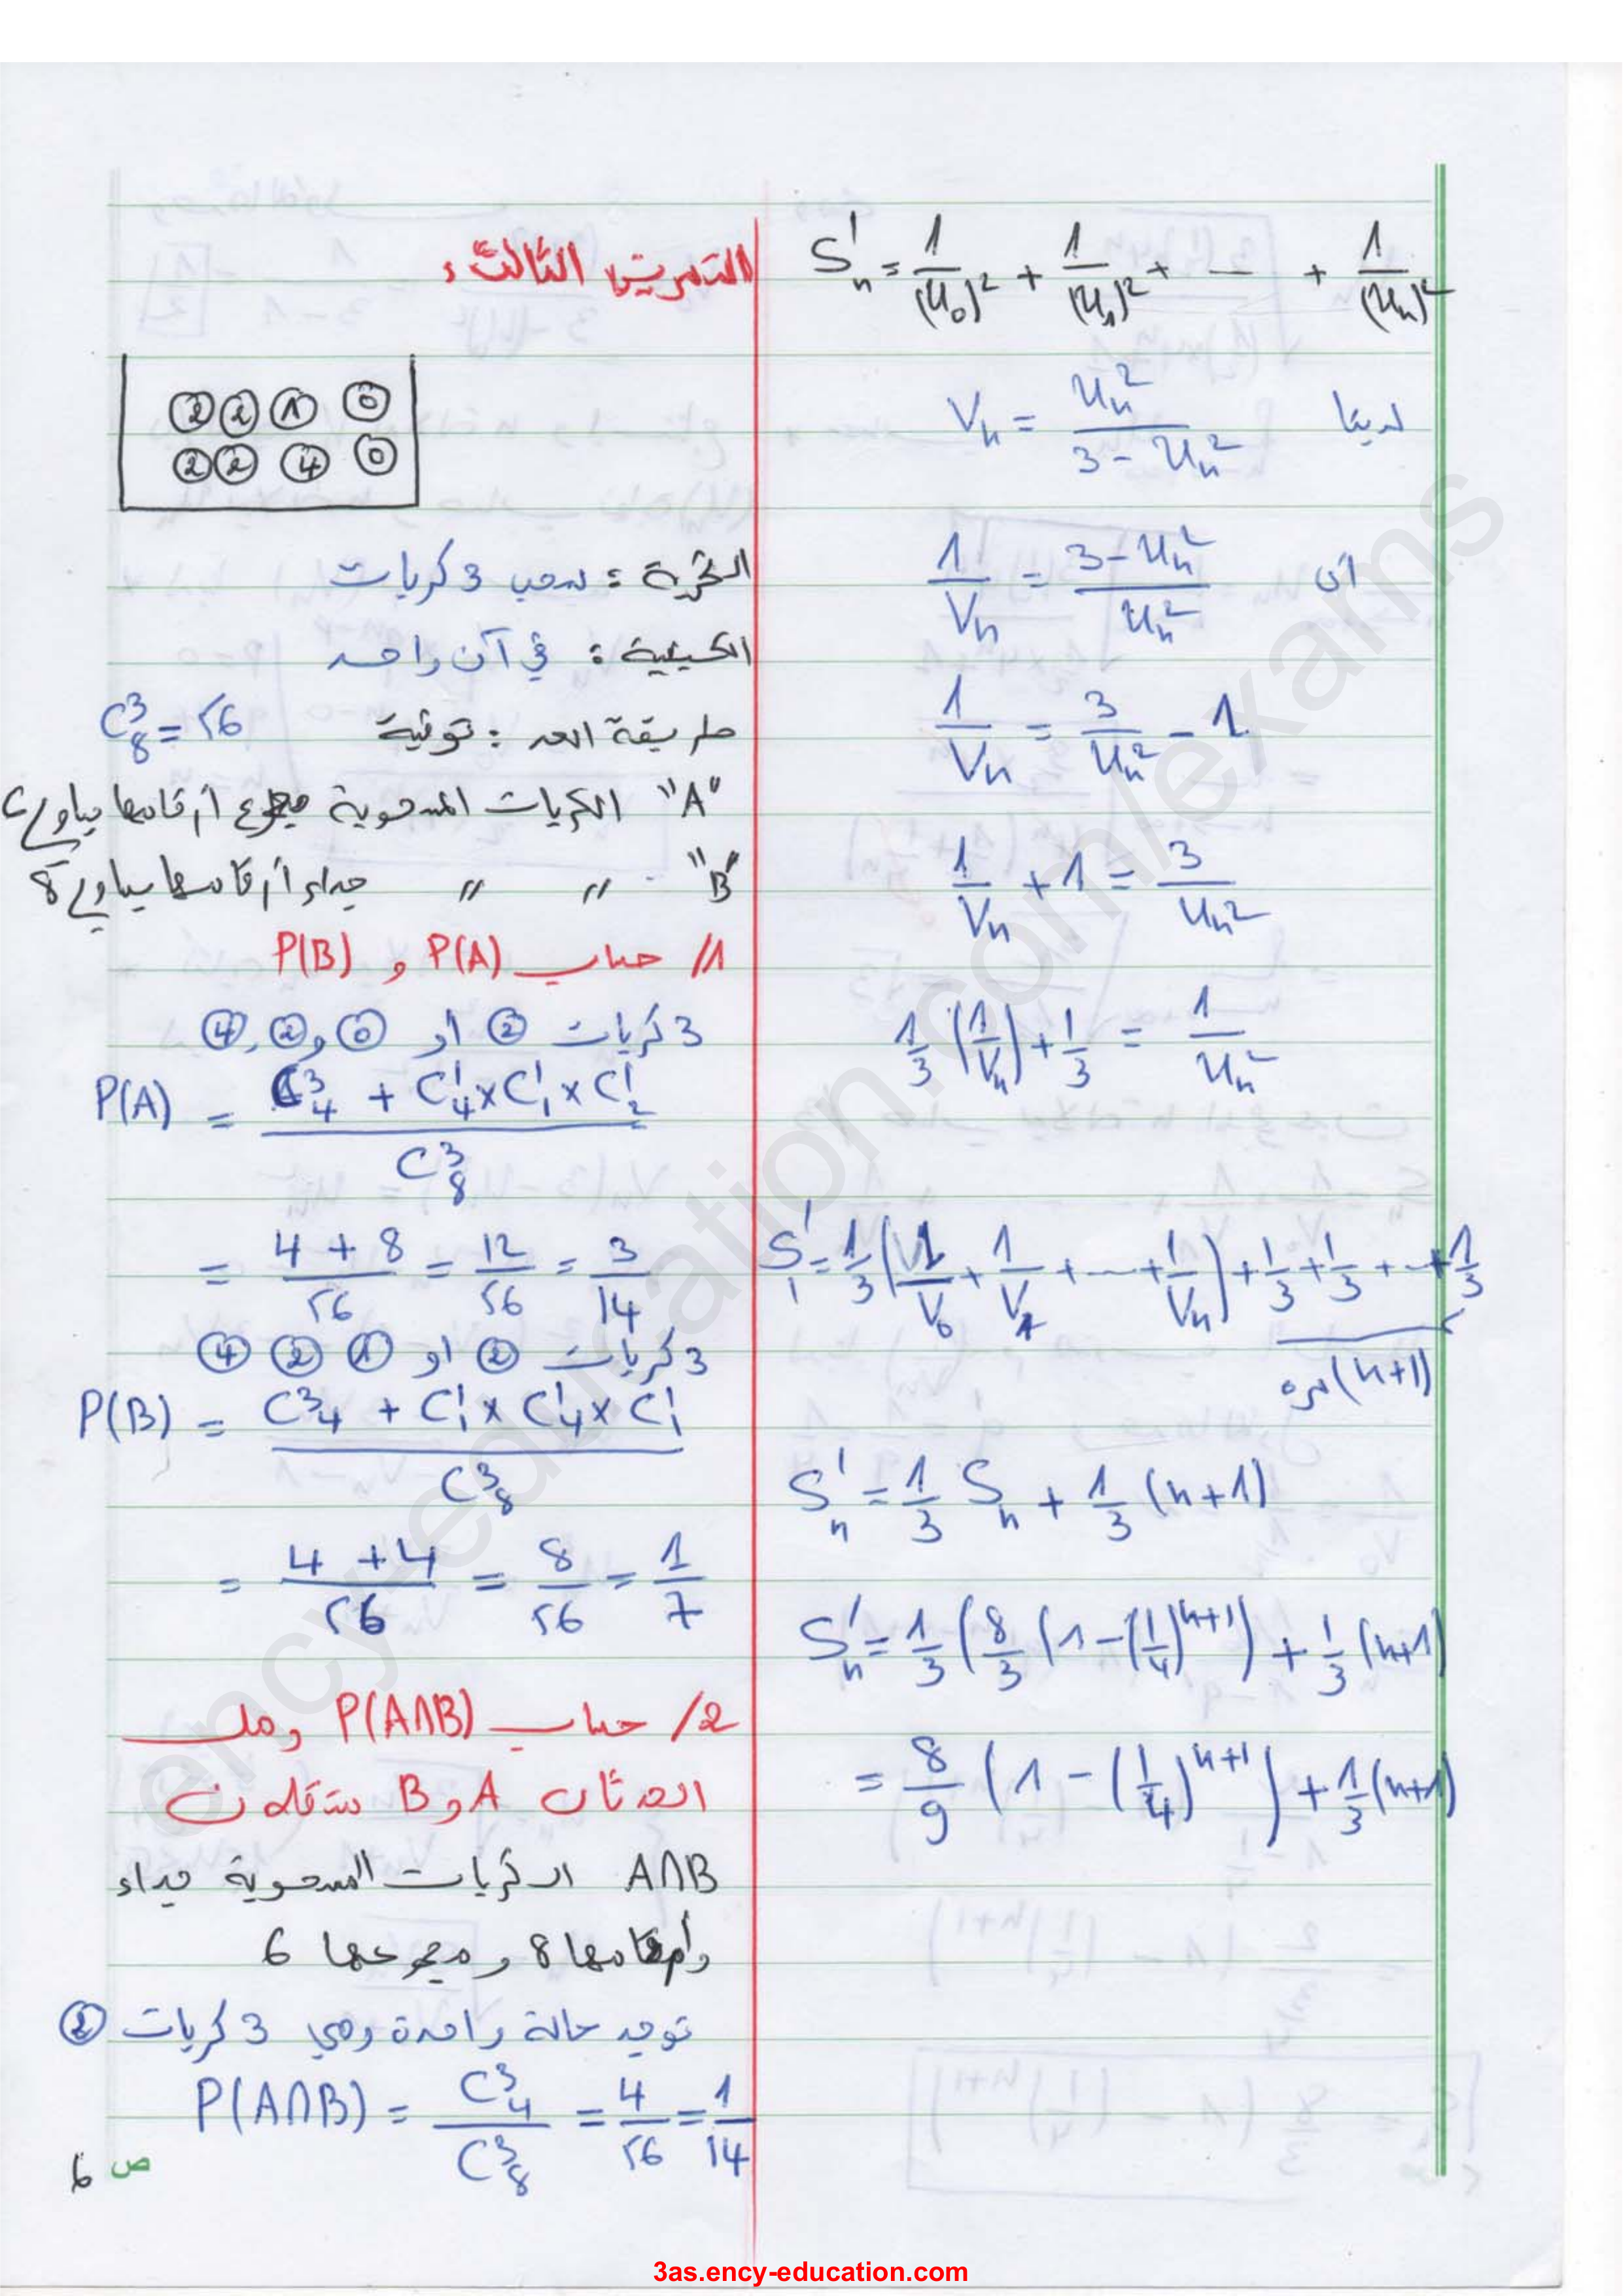 S'ₙ = 1/(U₀)² + 1/(U₁)² + --- + 1/(Uₙ)²
لدينا Vₙ = Uₙ²/(3 - Uₙ²)
أي 1/Vₙ = (3 - Uₙ²)/Uₙ²
1/Vₙ = 3/Uₙ² - 1
1/Vₙ + 1 = 3/Uₙ²
1/3 (1/Vₙ) + 1/3 = 1/Uₙ²
S' = 1/3 (1/V₀ + 1/V₁ + --- + 1/Vₙ) + 1/3 + 1/3 + --- + 1/3
(n+1) مرة
S'ₙ = 1/3 Sₙ + 1/3 (n+1)
S'ₙ = 1/3 (8/3 (1 - (1/4)ⁿ⁺¹) + 1/3 (n+1)
= 8/9 (1 - (1/4)ⁿ⁺¹) + 1/3 (n+1)
التمرين الثالث :
2 2 1 0
2 2 4 0
التجربة : سحب 3 كريات
الكيفية : في آن واحد
طريقة العد : توفيقة C₈³ = 56
"A" الكريات المسحوبة مجموع أرقامها يساوي 6
"B" " " جداء أرقامها يساوي 8
1/ حساب P(A) و P(B)
3 كريات 2 او 0 و 2 , 4
P(A) = (C₄³ + C₄¹ × C₁¹ × C₂¹)/C₈³
= (4 + 8)/56 = 12/56 = 3/14
3 كريات 2 او 1 2 4
P(B) = (C₄³ + C₁¹ × C₄¹ × C₁¹)/C₈³
= (4 + 4)/56 = 8/56 = 1/7
2/ حساب P(A∩B) وهل
الحدثان A و B مستقلان
A∩B الكريات المسحوبة جداء
أرقامها 8 و مجموعها 6
توجد حالة واحدة وهي 3 كريات 2
P(A∩B) = C₄³/C₈³ = 4/56 = 1/14
ص 6
ency-education.com/exams
3as.ency-education.com